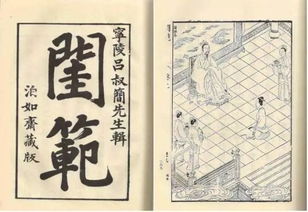 寧陵呂叔簡先生輯
閨範
泊如齋藏版